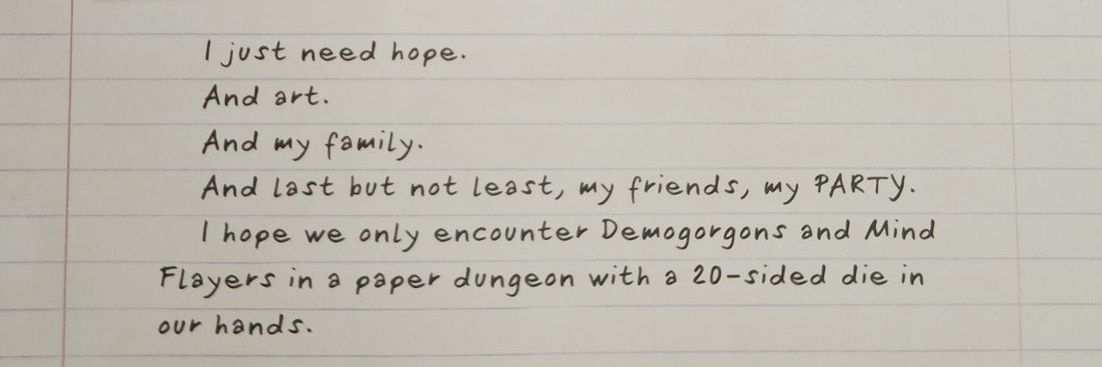 I just need hope.
And art.
And my family.
And last but not least, my friends, my PARTY.
I hope we only encounter Demogorgons and Mind
Flayers in a paper dungeon with a 20-sided die in
our hands.